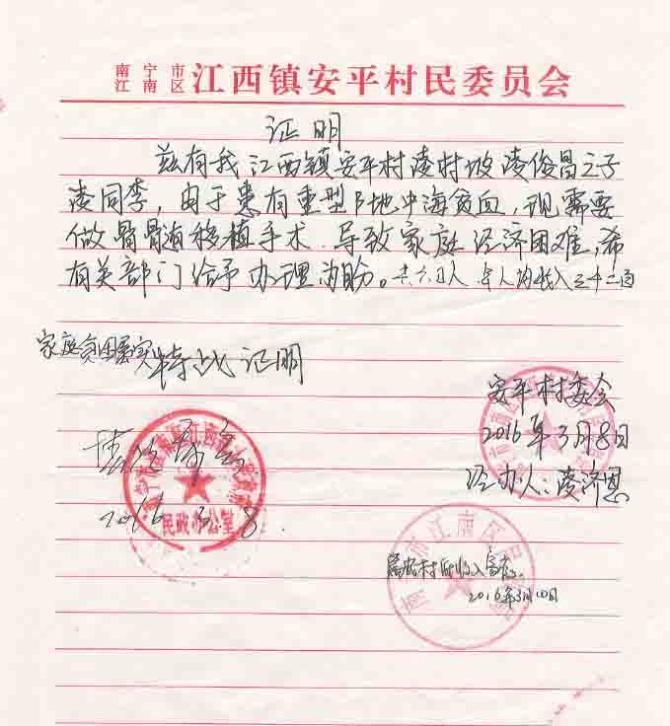 南宁市江南区江西镇安平村民委员会
证明
兹有我江西镇安平村凌村坡凌俊昌之子
凌同李，由于患有重型β地中海贫血，现需要
做骨髓移植手术.导致家庭经济困难,希
有关部门给予办理为盼。共六口人
家庭贫困属实 特此证明
安平村委会
2016年3月8日
经办人:凌济恩
民政办公室
2016 3 8
2016年3月10日